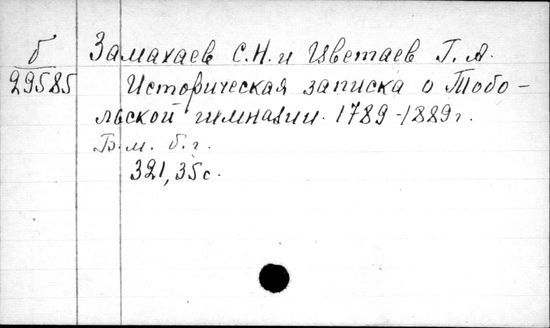 б
29585
Замахаев С.Н. и Цветаев Г. А.
Историческая записка о Тобо-
льской гимназии. 1789-1889 г.
Б. м. б. г.
321, 35 с.